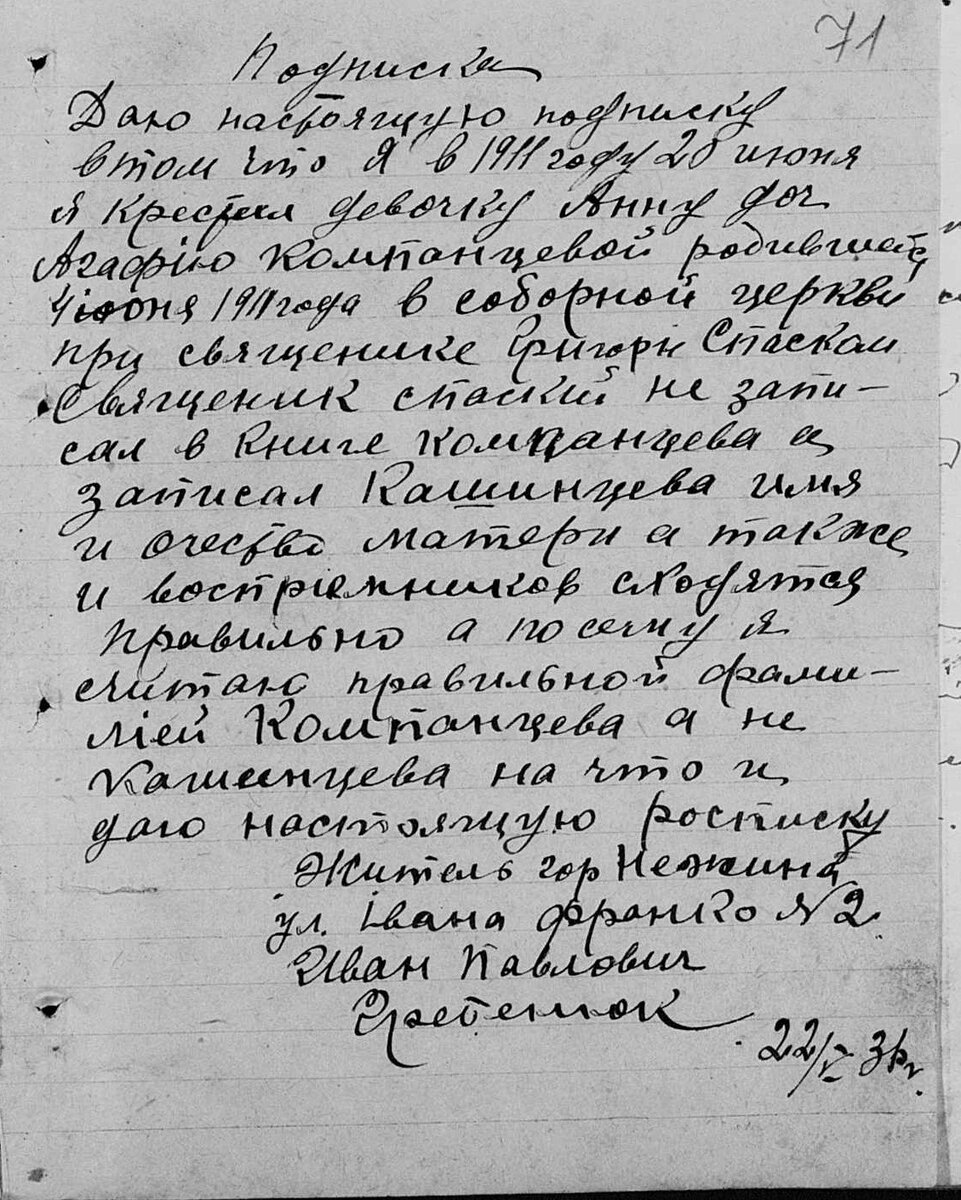 71
Подписка
Даю настоящую подписку
в том что Я в 1911 году 20 июня
я крестил девочку Анну доч
Агафію Компанцевой родившейся
4 июня 1911 года в соборной церкви
при священике Григори Спаском
Священик спаский не запи-
сал в книге Компанцева а
записал Кашинцева имя
и очество матери а также
и восприемников сходятся
правильно а посему я
считаю правильной фами-
лией Компанцева а не
Кашинцева на что и
даю настоящую росписку
Житель гор Нежина
ул. Івана Франко № 2.
Иван Павлович
22/V 36 г.